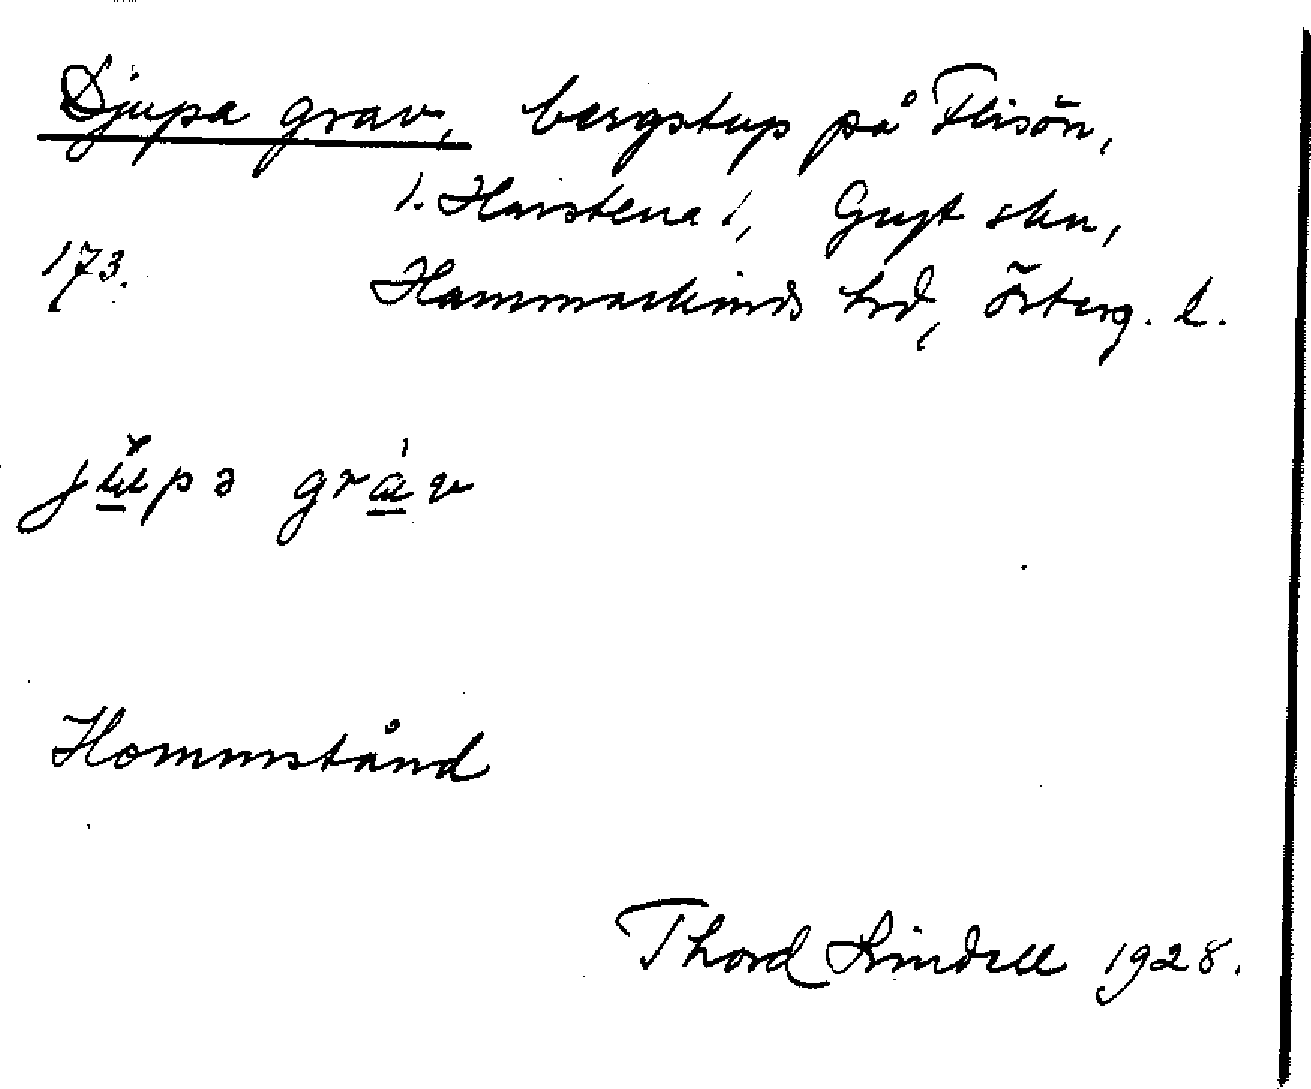 Djupa grav, bergstup på Flisön,
1. Harstena 1, Gryt skn,
173. Hammarkinds hd, Österg. l.
jupə grav
Hommstånd
Thord Lindell 1928.